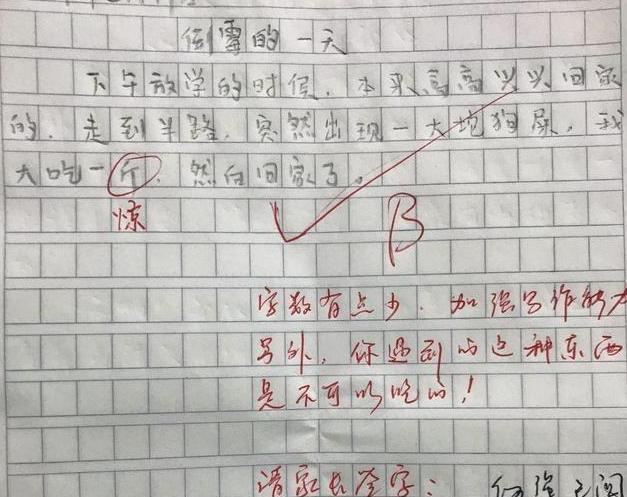 倒霉的一天
下午放学的时候，本来高高兴兴回家
的，走到半路，突然出现一大坨狗屎，我
大吃一斤，然后回家了。
惊
B
字数有点少．加强写作能力
另外，你遇到的这种东西
是不可以吃的！
请家长签字：